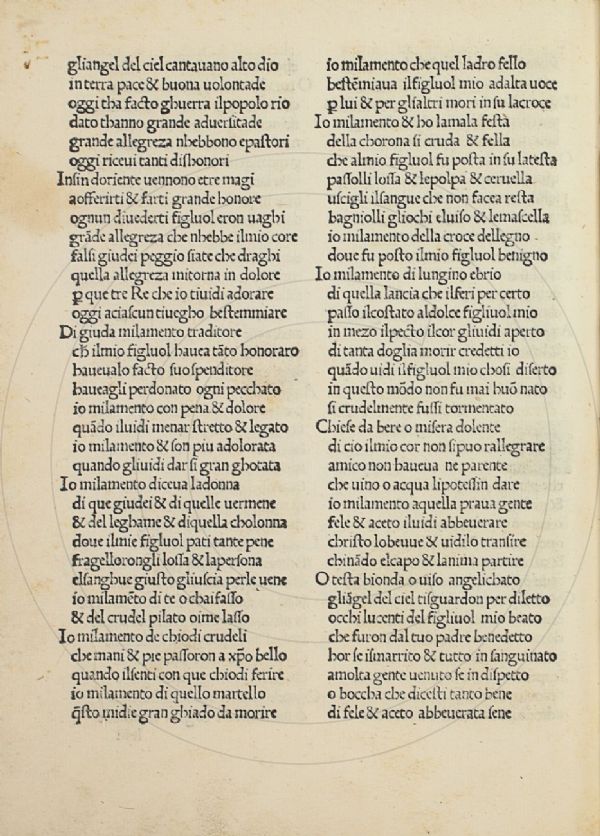 gliangel del ciel cantauano alto dio
in terra pace & buona uolontade
oggi tha facto ghuerra ilpopolo rio
dato thanno grande aduersitade
grande allegreza nhebbono epastori
oggi riceui tanti dishonori
Insin doriente uennono etre magi
aofferirti & farti grande honore
ognun diuederti figluol eron uaghi
grāde allegreza che nhebbe ilmio core
falsi giudei peggio siate che draghi
quella allegreza mitorna in dolore
ꝑ que tre Re che io tiuidi adorare
oggi aciascun tiuegho bestemmiare
Di giuda milamento traditore
ch̄ ilmio figluol hauea tāto honoraro
haueualo facto suo spenditore
haueagli perdonato ogni pecchato
io milamento con pena & dolore
quādo iluidi menar stretto & legato
io milamento & son piu adolorata
quando gliuidi dar si gran ghotata
Io milamento diceua ladonna
di que giudei & di quelle uermene
& del leghame & diquella cholonna
doue ilmie figluol pati tante pene
fragellorongli lossa & lapersona
elsanghue giusto gliuscia perle uene
io milamēto di te o chaifasso
& del crudel pilato oime lasso
Io milamento de chiodi crudeli
che mani & pie passoron a xp̄o bello
quando ilsenti con que chiodi ferire
io milamento di quello martello
q̄sto midie gran ghiado da morire
io milamento che quel ladro fello
bestēmiaua ilfigluol mio adalta uoce
ꝑ lui & per glialtri mori in su lacroce
Io milamento & ho lamala festa
della chorona si cruda & fella
che almio figluol fu posta in su latesta
passolli lossa & lepolpa & ceruella
uscigli ilsangue che non facea resta
bagniolli gliochi eluiso & lemascella
io milamento della croce dellegno
doue fu posto ilmio figluol benigno
Io milamento di lungino ebrio
di quella lancia che ilferi per certo
passo ilcostato aldolce figluol mio
in mezo ilpecto ilcor gliuidi aperto
di tanta doglia morir credetti io
quādo uidi ilfigluol mio chosi diserto
in questo mōdo non fu mai buō nato
si crudelmente fussi tormentato
Chiese da bere o misera dolente
di cio ilmio cor non sipuo rallegrare
amico non haueua ne parente
che uino o acqua lipotessin dare
io milamento aquella praua gente
fele & aceto iluidi abbeuerare
christo lobeuue & uidilo transire
chinādo elcapo & lanima partire
O testa bionda o uiso angelichato
gliāgel del ciel tisguardon per diletto
occhi lucenti del figluol mio beato
che furon dal tuo padre benedetto
hor se ismarrito & tutto in sanguinato
amolta gente uenuto se in dispetto
o boccha che dicesti tanto bene
di fele & aceto abbeuerata sene